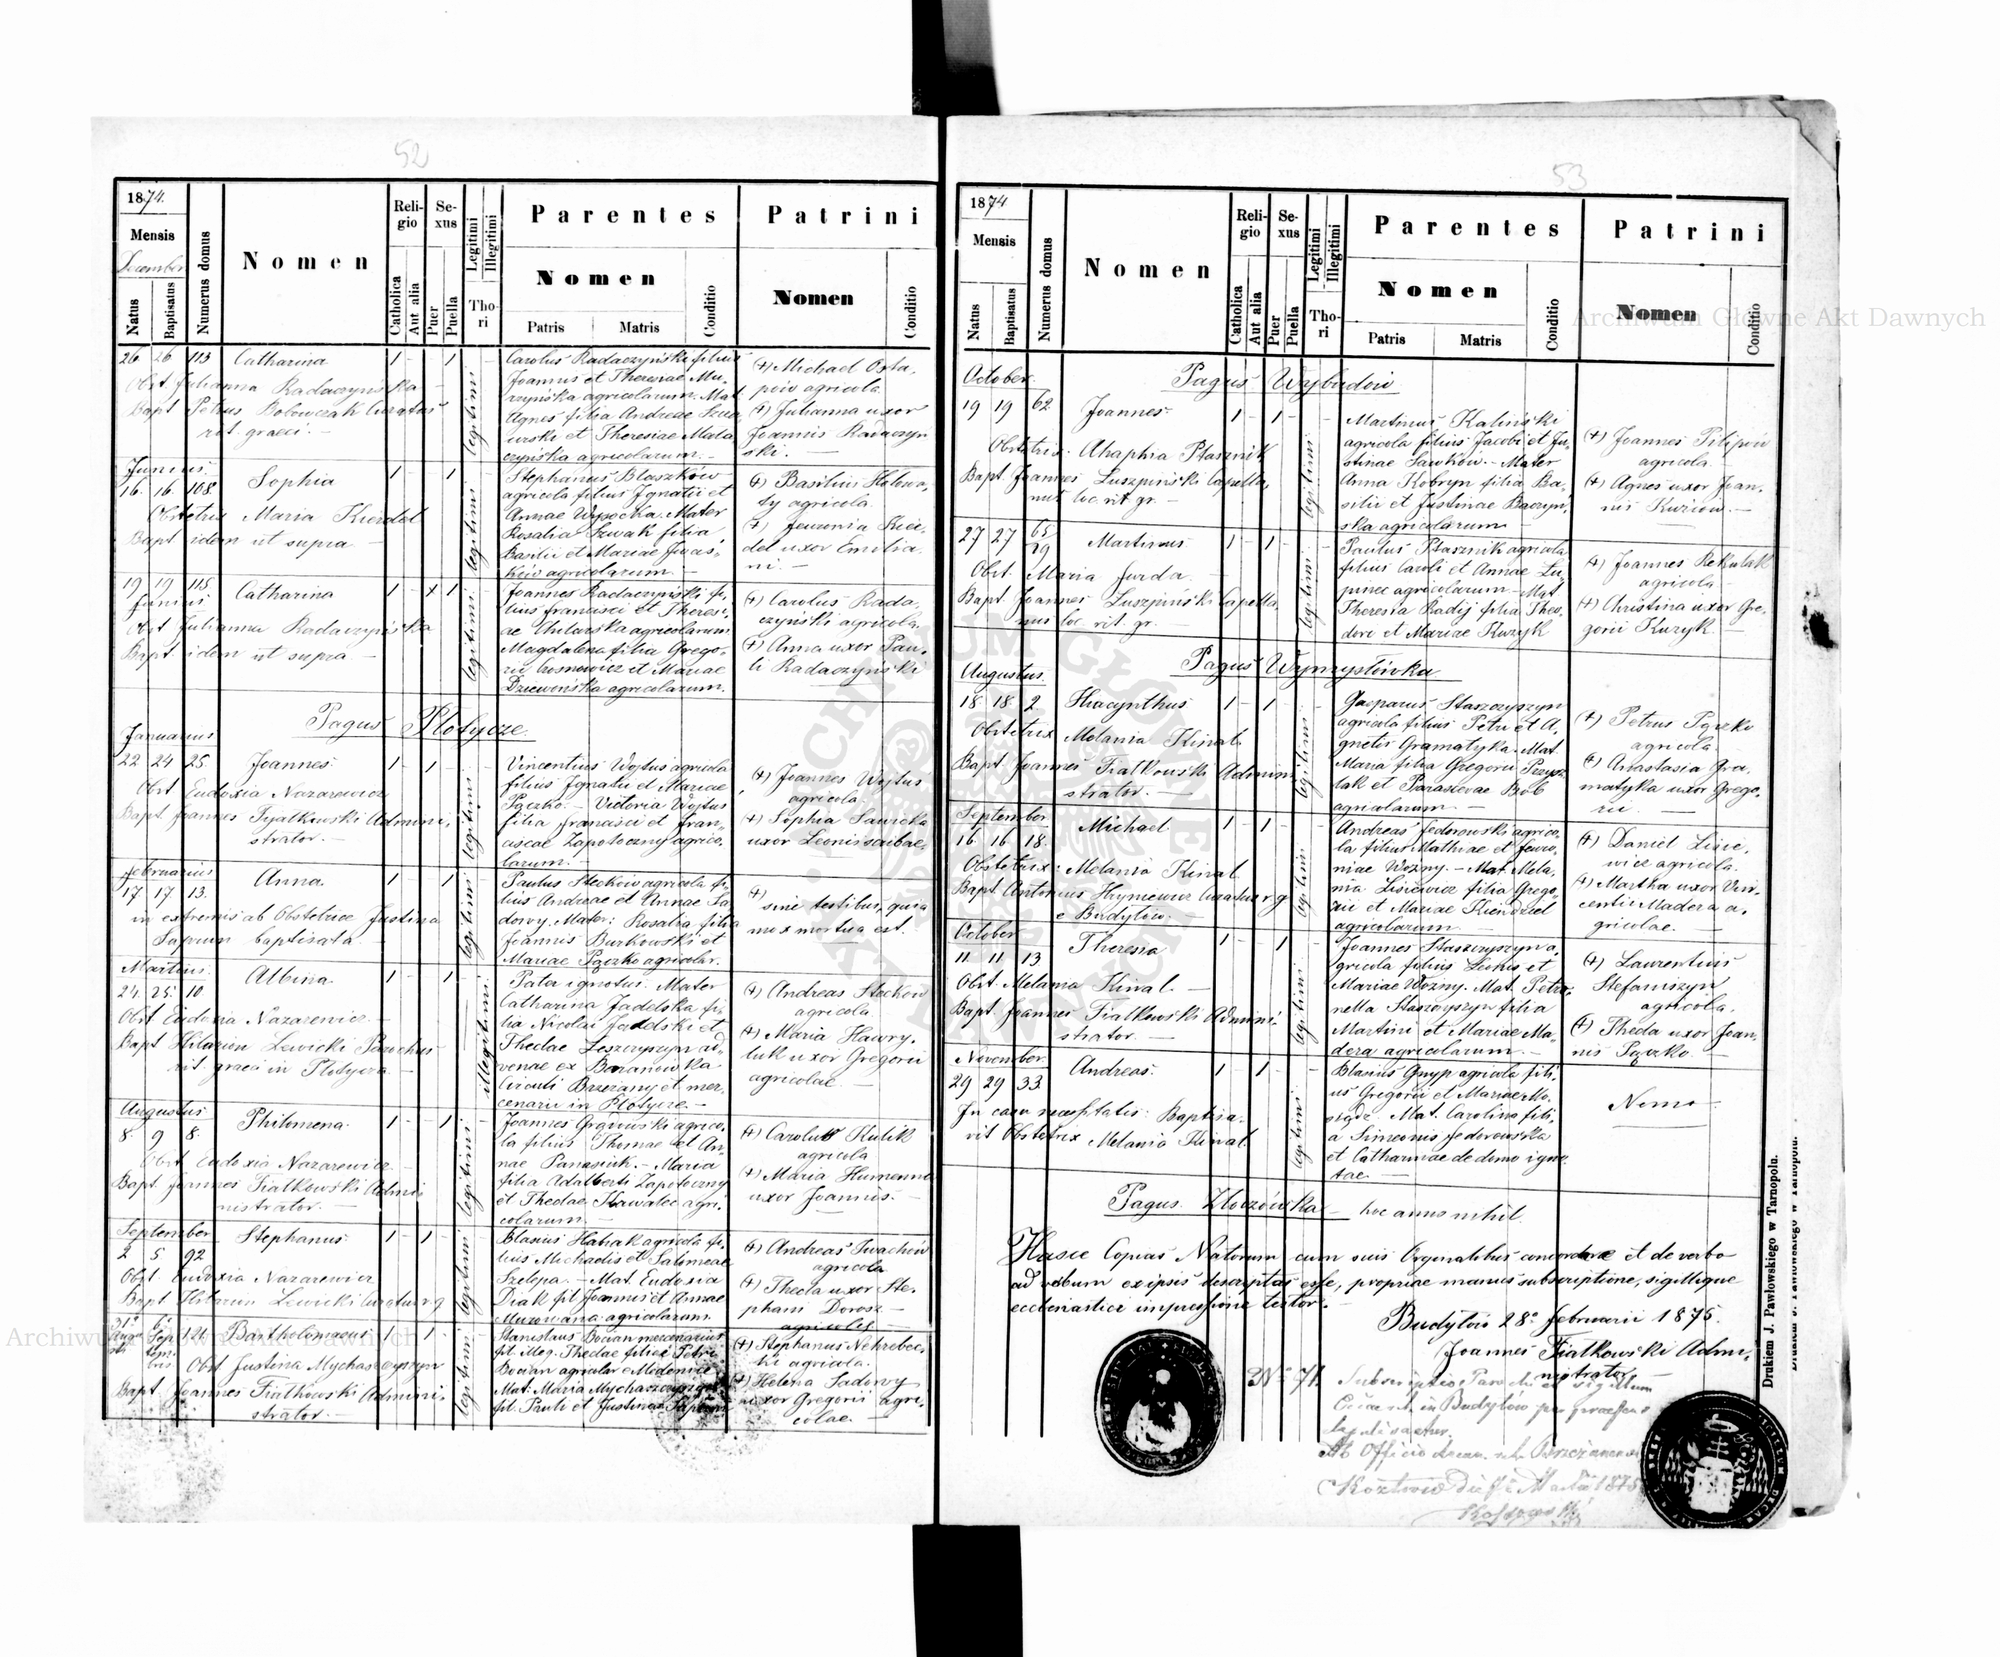 52
1874.
Mensis
December
Natus
Baptisatus
Numerus domus
Nomen
Religio
Catholica
Aut alia
Sexus
Puer
Puella
Legitimi
Illegitimi
Thori
Parentes
Nomen
Patris
Matris
Conditio
Patrini
Nomen
Conditio
26 26 113 Catharina 1 - 1 -
Obst. Julianna Radaczyńska
Bapt Petrus Bobowczak Curatus
rit. graeci. -
legitimi
Carolus Radaczyński filius
Joannis et Theresiae Mu-
rzyńska agricolarum. Mat.
Agnes filia Andreae
et Theresiae
agricolarum. -
(+) Michael Osta-
pów agricola
(+) Julianna uxor
Joannis Radaczyń
ski. -
Junius.
16. 16. 108. Sophia 1 - 1 -
Obstetrix Maria Kierdel
Bapt idem ut supra -
legitimi
Stephanus Blaszków
agricola filius Ignatii et
Annae Wysocka. Mater
Rosalia Szwak filia
Basilii et Mariae
agricolarum. -
(+) Basilius
agricola.
(+) Kier-
del uxor Emilia-
ni. -
19 19 115 Catharina 1 - x 1 -
Junius
Obst Julianna Radaczyńska
Bapt. idem ut supra -
legitimi
Joannes Radaczyński fi-
lius Francisci et Theresi-
ae agricolarum
Magdalena filia Grego-
rii et Mariae
Dziewońska agricolarum.
(+) Carolus Rada-
czyński agricola.
(+) Anna uxor Pau-
li Radaczyński
Pagus Płotycze.
Januarius
22 24 25 Joannes 1 - 1 -
Obst Eudoxia Nazarewicz
Bapt Joannes Fijałkowski Admini-
strator. -
legitimi
Vincentius Wojtus agricola
filius Ignatii et Mariae
Pączko. - Victoria Wojtus
filia Francisci et Fran-
ciscae Zapotoczny agrico-
larum. -
(+) Joannes Wojtus
agricola.
(+) Sophia Sawicka
uxor Leonis
Februarius
17 17 13. Anna. 1 - 1 -
in extremis ab Obstetrice Justina
baptisata. -
legitimi
Paulus Steckow agricola fi-
lius Andreae et Annae Sa-
dowy. Mater: Rosalia filia
Joannis Burkowski et
Mariae Pączko agricolar.
(+)
sine testibus, quia
mox mortua est. -
Martius.
24. 25. 10 Albina. 1 - 1 -
Obst Eudoxia Nazarewicz. -
Bapt Hilarion Lewicki Parochus
rit. graeci in Płotycza. -
illegitimi
Pater ignotus. Mater
Catharina Jadelska fi-
lia Nicolai Jadelski et
Theclae Leszczyszyn ad-
venae ex Baranówka
Circuli Brzezany et mer-
cenarii in Płotycze. -
(+) Andreas Steckow
agricola.
(+) Maria Hawry-
luk uxor Gregorii
agricolae -
Augustus
8. 9 8. Philomena. 1 - 1 -
Obst Eudoxia Nazarewicz -
Bapt. Joannes Fiałkowski Admi-
nistrator. -
legitimi
Joannes agrico-
la filius Thomae et An-
nae Panasiuk. - Maria
filia Adalberti Zapotoczny
et Theclae Kawalec agri-
colarum. -
(+) Carolus Kulik
agricola
(+) Maria Humenna
uxor Joannis. -
September Stephanus 1 - 1 -
2 5 92
Obst. Eudoxia Nazarewicz
Bapt Hilarion Lewicki Curatus r.g
legitimi
Blasius agricola fi-
lius Michaelis et Salomeae
- Mat. Eudoxia
Diak fil Joannis et Annae
agricolarum.
(+) Andreas Iwachów
agricola
(+) Thecla uxor Ste-
phani Dorosz -
31 6. 121. Bartholomaeus 1 - 1 -
Obst Justina Mychaszczyszyn
Bapt. Joannes Fiałkowski Admini-
strator. -
legitimi
Stanislaus Bocian mercenarius
fil. illeg. Theclae filiae Petri
Bocian agricolar
Mat: Maria Mychaszczyszyn
fil. Pauli et Justinae
(+) Stephanus Nehrebec-
ki agricola.
(+) Helena Sadowy
uxor Gregorii agri-
colae -
53
1874
Mensis
Natus
Baptisatus
Numerus domus
Nomen
Religio
Catholica
Aut alia
Sexus
Puer
Puella
Legitimi
Illegitimi
Thori
Parentes
Nomen
Patris
Matris
Conditio
Patrini
Nomen
Conditio
October. Pagus Wybudów
19 19 62 Joannes. 1 - 1 -
Obstetrix. Ahaphia Ptasznik
Bapt. Joannes Łuszpiński Capella-
nus loc. rit. gr. -
legitimi
Martinus Kaliński
agricola filius Jacobi et Ju-
stinae Sawków. - Mater
Anna Kobryn filia Ba-
silii et Justinae Baczyń-
ska agricolarum
(+) Joannes Pilipów
agricola. -
(+) Agnes uxor Joan-
nis Kuziow. -
27 27 65/79 Martinus 1 - 1 -
Obst. Maria Jurda. -
Bapt Joannes Łuszpiński Capella-
nus loc. rit. gr. -
legitimi
Paulus Ptasznik agricola
filius Caroli et Annae Łu-
piniec agricolarum - Mat.
Theresia Radij filia Theo-
dori et Mariae Kuzyk
(+) Joannes Rekulak
agricola. -
(+) Christina uxor Gre-
gorii Kuzyk. -
Augustus. Pagus Wymysłówka
18. 18. 2 Hyacynthus 1 - 1 -
Obstetrix Melania Kinal.
Bapt Joannes Fiałkowski Admini-
strator. -
legitimi
Gasparus Staszczyszyn
agricola filius Petri et A-
gnetis Gramatyka. Mat.
Maria filia Gregorii
et Parascevae Bob
agricolarum. -
(+) Petrus Pączko
agricola.
(+) Anastasia Gra-
matyka uxor Grego-
rii -
September
16 16 18. Michael 1 - 1 -
Obstetrix: Melania Kinal
Bapt. Antonius Hryniewicz Curatus r.g
e Budyłów. -
legitimi
Andreas Fedorowski agrico-
la filius Mathiae et
Wozny. - Mat. Mela-
nia Lisiewicz filia Grego-
rii et Mariae Kiendziel
agricolarum -
(+) Daniel Lisie-
wicz agricola.
(+) Martha uxor Vin-
centii Madera a-
gricolae. -
October
11 11 13 Theresia 1 - 1 -
Obst. Melania Kinal. -
Bapt. Joannes Fiałkowski Admini-
strator. -
legitimi
Joannes Staszczyszyn a-
gricola filius Leonis et
Mariae Wozny. Mat. Petro-
nella Staszczyszyn filia
Martini et Mariae Ma-
dera agricolarum. -
(+) Laurentius
Stefaniszyn
agricola.
(+) Thecla uxor Joan-
nis Pączko. -
November
29 29 33 Andreas. 1 - 1 -
In casu necessitatis. Baptisa-
vit Obstetrix Melania Kinal.
legitimi
Blasius Gnyp agricola fili-
us Gregorii et Mariae
Mat. Carolina fili-
a Simeonis Fedorowska
et Catharinae de domo igno-
tae. -
Nemo
Pagus Złoczówka - hoc anno nihil.
Hasce Copias Natorum cum suis Originalibus concordare et de verbo
ad verbum ex ipsis descriptas esse, propriae manus subscriptione, sigillique
ecclesiastici impressione testor. -
Budyłów 28. Februarii 1875.
Joannes Fiałkowski Admi-
nistrator
No 71.
Subscriptio Parochi et sigillum
in Budyłów
Ab Officio
1875
Drukiem J. Pawłowskiego w Tarnopolu.
Archiwum Główne Akt Dawnych
Archiwum Główne Akt Dawnych
ARCHIWUM GŁÓWNE AKT DAWNYCH